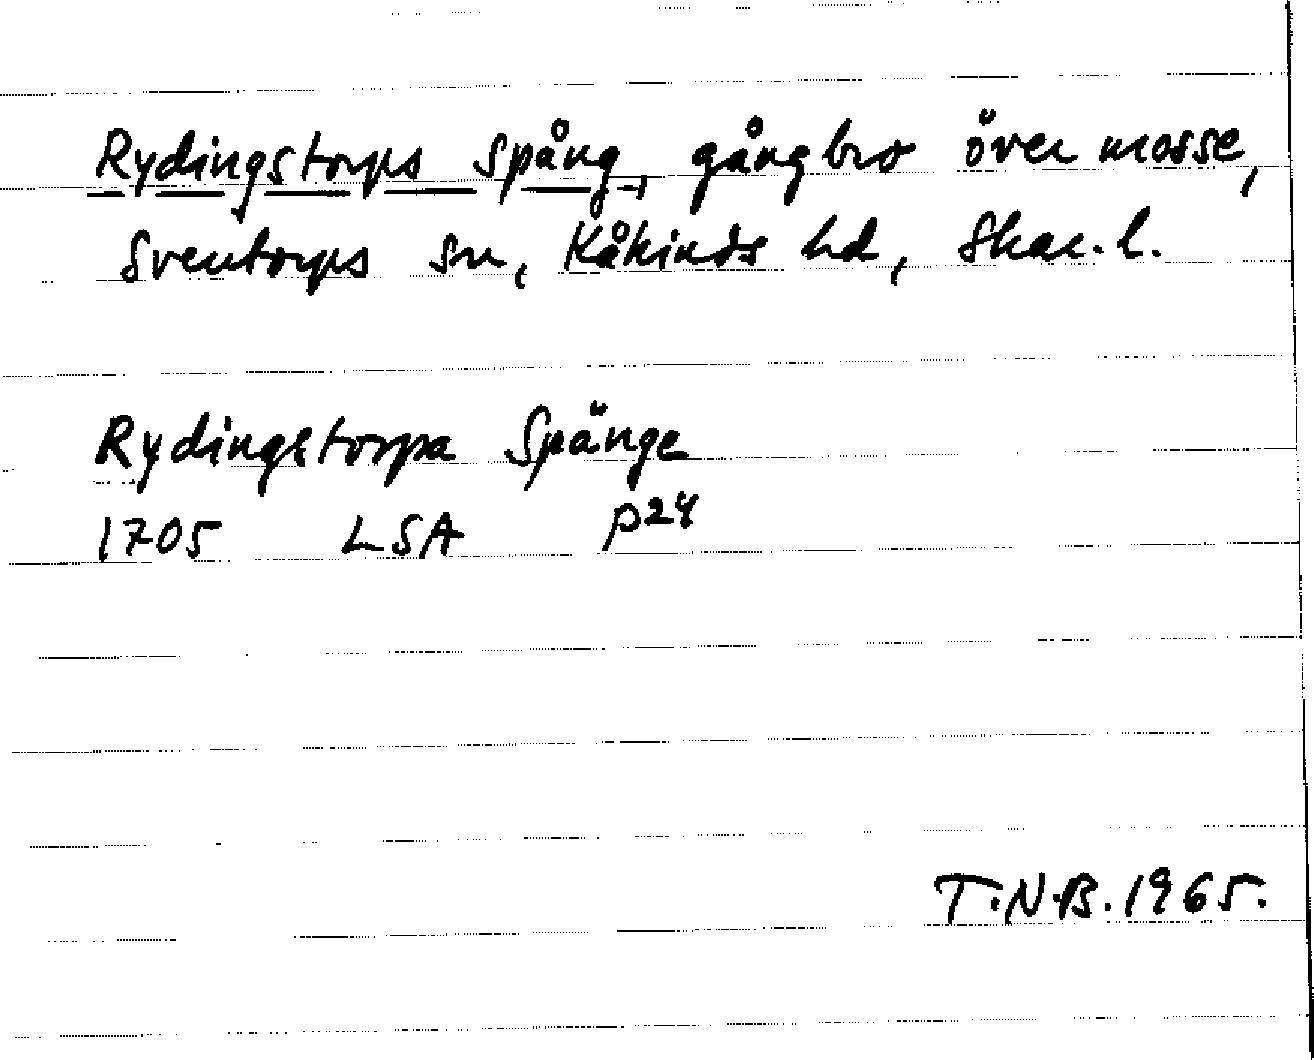 Rydingstorps Spång, gångbro över mosse,
Sventorps sn, Kåkinds hd, Skar. l.
Rydingstorpa Spänge
1705 LSA p24
T.N.B. 1965.